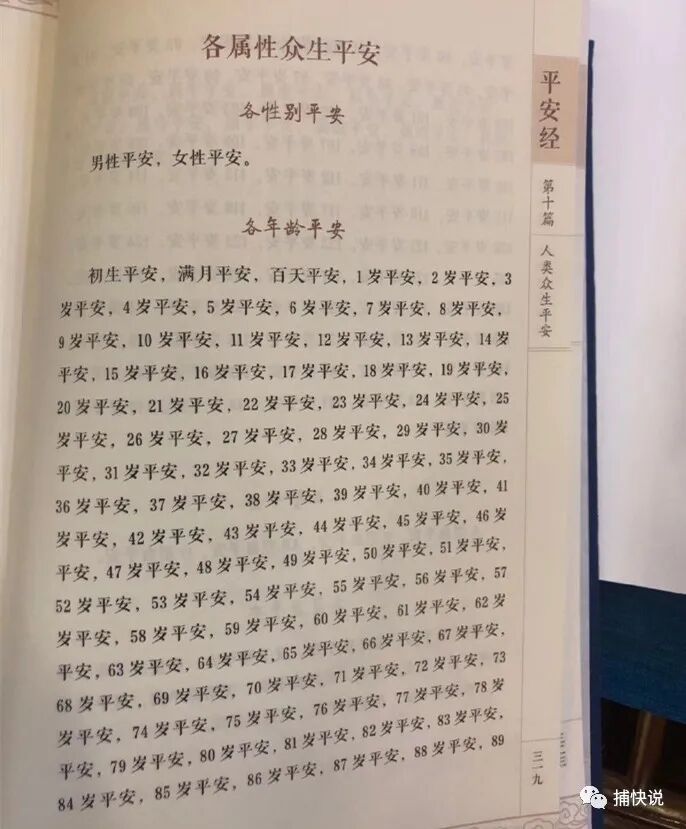 各属性众生平安
各性别平安
男性平安，女性平安。
各年龄平安
初生平安，满月平安，百天平安，1岁平安，2岁平安，3
岁平安，4岁平安，5岁平安，6岁平安，7岁平安，8岁平安，
9岁平安，10岁平安，11岁平安，12岁平安，13岁平安，14岁
平安，15岁平安，16岁平安，17岁平安，18岁平安，19岁平安，
20岁平安，21岁平安，22岁平安，23岁平安，24岁平安，25
岁平安，26岁平安，27岁平安，28岁平安，29岁平安，30岁
平安，31岁平安，32岁平安，33岁平安，34岁平安，35岁平安，
36岁平安，37岁平安，38岁平安，39岁平安，40岁平安，41
岁平安，42岁平安，43岁平安，44岁平安，45岁平安，46岁
平安，47岁平安，48岁平安，49岁平安，50岁平安，51岁平安，
52岁平安，53岁平安，54岁平安，55岁平安，56岁平安，57
岁平安，58岁平安，59岁平安，60岁平安，61岁平安，62岁
平安，63岁平安，64岁平安，65岁平安，66岁平安，67岁平安，
68岁平安，69岁平安，70岁平安，71岁平安，72岁平安，73
岁平安，74岁平安，75岁平安，76岁平安，77岁平安，78岁
平安，79岁平安，80岁平安，81岁平安，82岁平安，83岁平安，
84岁平安，85岁平安，86岁平安，87岁平安，88岁平安，89
平安经
第十篇 人类众生平安
三一九
捕快说